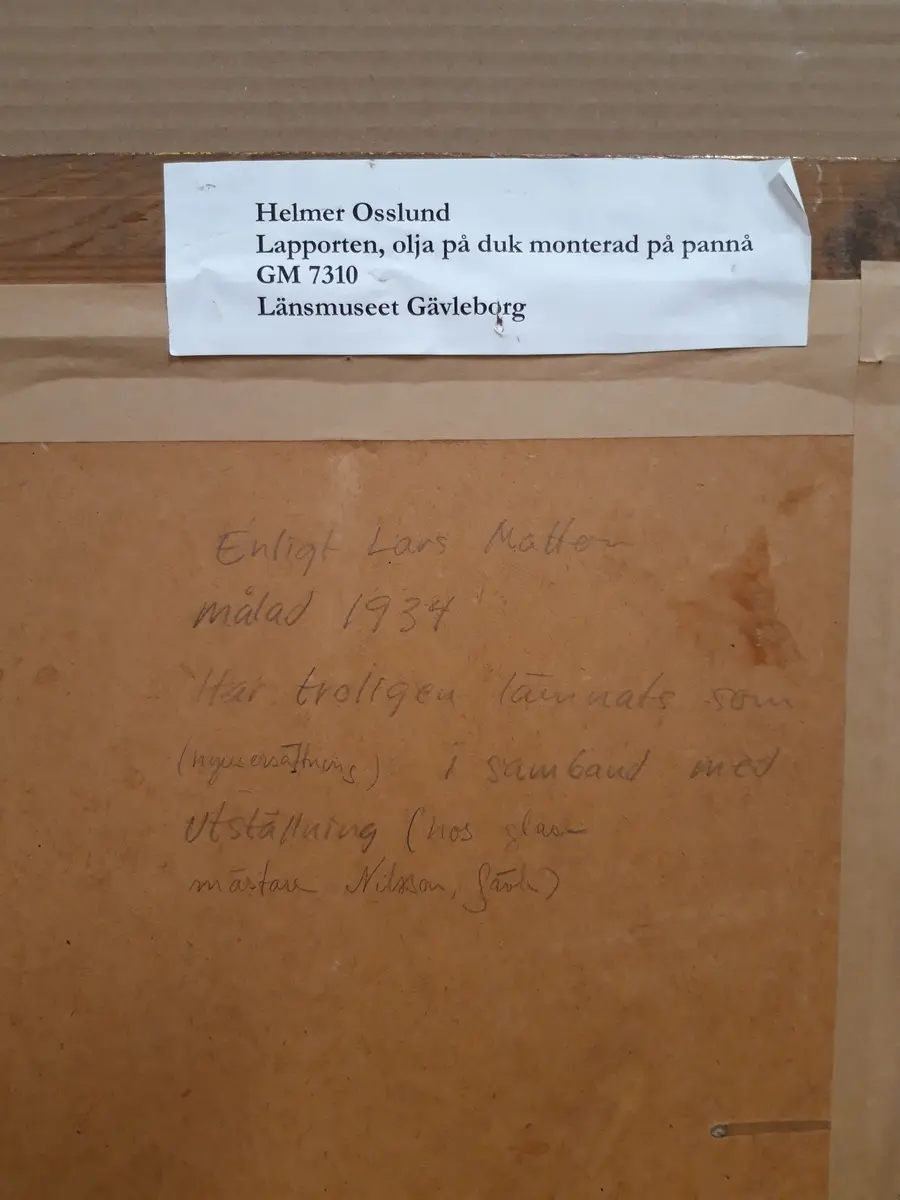 Helmer Osslund
Lapporten, olja på duk monterad på pannå
GM 7310
Länsmuseet Gävleborg
Enligt Lars Matton
målad 1934
Har troligen lämnats som
i samband med
Utställning (hos glas
mästare Nilsson, Gävle)